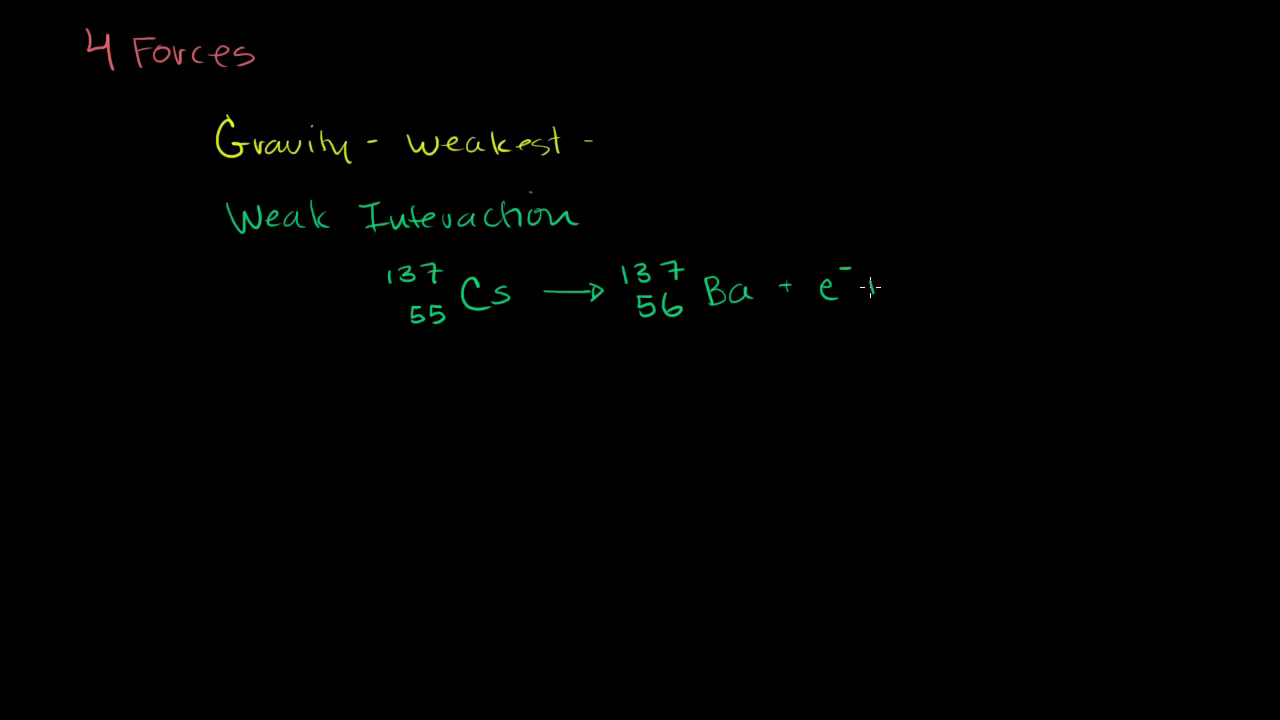 4 Forces
Gravity - weakest -
Weak Interaction
¹³⁷₅₅Cs → ¹³⁷₅₆Ba + e⁻ +